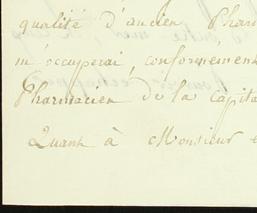 qualité d'ancien Phar
m'occuperai, conformément
Pharmacien de la capita
Quant à Monsieur